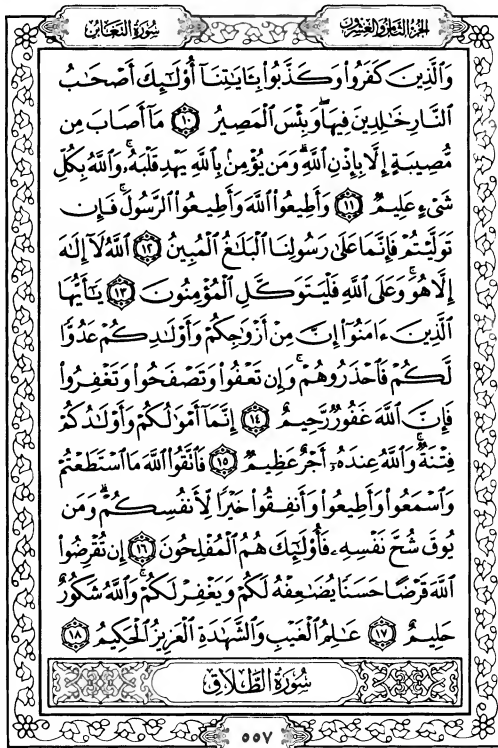 سُورَةُ التَّغَابُنِ
الجُزءُ الثَّامِنُ وَالعِشْرُونَ
وَالَّذِينَ كَفَرُوا۟ وَكَذَّبُوا۟ بِـَٔايَـٰتِنَآ أُو۟لَـٰٓئِكَ أَصْحَـٰبُ
النَّارِ خَـٰلِدِينَ فِيهَا ۖ وَبِئْسَ الْمَصِيرُ ١٠ مَآ أَصَابَ مِن
مُّصِيبَةٍ إِلَّا بِإِذْنِ اللَّهِ ۗ وَمَن يُؤْمِنۢ بِاللَّهِ يَهْدِ قَلْبَهُۥ ۚ وَاللَّهُ بِكُلِّ
شَىْءٍ عَلِيمٌ ١١ وَأَطِيعُوا۟ اللَّهَ وَأَطِيعُوا۟ الرَّسُولَ ۚ فَإِن
تَوَلَّيْتُمْ فَإِنَّمَا عَلَىٰ رَسُولِنَا الْبَلَـٰغُ الْمُبِينُ ١٢ اللَّهُ لَآ إِلَـٰهَ
إِلَّا هُوَ ۚ وَعَلَى اللَّهِ فَلْيَتَوَكَّلِ الْمُؤْمِنُونَ ١٣ يَـٰٓأَيُّهَا
الَّذِينَ ءَامَنُوٓا۟ إِنَّ مِنْ أَزْوَٰجِكُمْ وَأَوْلَـٰدِكُمْ عَدُوًّا
لَّكُمْ فَاحْذَرُوهُمْ ۚ وَإِن تَعْفُوا۟ وَتَصْفَحُوا۟ وَتَغْفِرُوا۟
فَإِنَّ اللَّهَ غَفُورٌ رَّحِيمٌ ١٤ إِنَّمَآ أَمْوَٰلُكُمْ وَأَوْلَـٰدُكُمْ
فِتْنَةٌ ۚ وَاللَّهُ عِندَهُۥٓ أَجْرٌ عَظِيمٌ ١٥ فَاتَّقُوا۟ اللَّهَ مَا اسْتَطَعْتُمْ
وَاسْمَعُوا۟ وَأَطِيعُوا۟ وَأَنفِقُوا۟ خَيْرًا لِّأَنفُسِكُمْ ۗ وَمَن
يُوقَ شُحَّ نَفْسِهِۦ فَأُو۟لَـٰٓئِكَ هُمُ الْمُفْلِحُونَ ١٦ إِن تُقْرِضُوا۟
اللَّهَ قَرْضًا حَسَنًا يُضَـٰعِفْهُ لَكُمْ وَيَغْفِرْ لَكُمْ ۚ وَاللَّهُ شَكُورٌ
حَلِيمٌ ١٧ عَـٰلِمُ الْغَيْبِ وَالشَّهَـٰدَةِ الْعَزِيزُ الْحَكِيمُ ١٨
سُورَةُ الطَّلَاقِ
٥٥٧